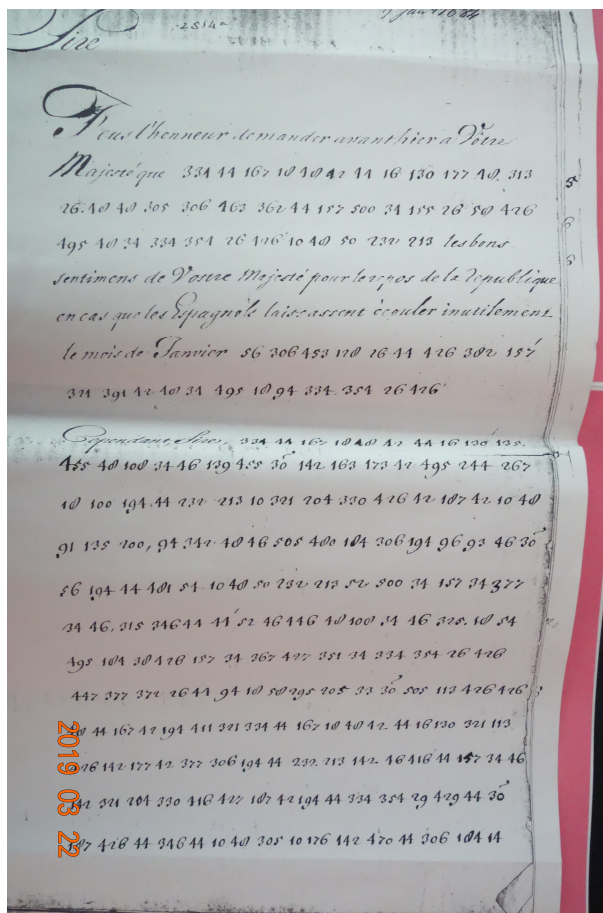 Sire
J'eus l'honneur demander avant hier a Vôtre
Majesté que 334 44 167 18 48 42 44 16 130 177 48. 313
26. 48 48 305 306 463 362 44 157 500 34 155 26 58 426
495 48 34 334 354 26 426 10 48 50 232 213 les bons
sentimens de Vostre Majesté pour le repos de la Republique
en cas que les Espagnols laissassent écouler inutilement
le mois de Janvier 56 306 453 128 26 44 426 382 157
321 391 42 48 34 495 18 94 334. 354 26 426
Cependant, Sire, 334 44 167 18 48 42 44 16 130 135.
455 48 108 34 46 139 455 30 142 163 173 42 495 244 267
18 100 194. 44 232 213 10 321 204 330 426 42 187 42 10 48
91 135 200, 94 342 48 46 505 480 184 306 194 96 93 46 30
56 194 44 481 54 10 48 50 232 213 52 500 34 157 34 377
34 46, 315 346 44 44 52 46 446 48 108 34 46 325. 18 54
495 184 38 426 157 34 367 427 351 34 334 354 26 426
447 377 372 26 44 94 18 58 295 205 33 30 505 113 426 426
48 44 167 42 194 411 321 334 44 167 18 48 42. 44 16 130 321 113
426 142 177 42 377 306 194 44 232. 213 142 46 416 44 157 34 46
142 321 204 330 416 427 187 42 194 44 334 354 29 429 44 30
187 426 44 346 44 10 48 305 10 176 142 470 44 306 184 14
2019 03 22